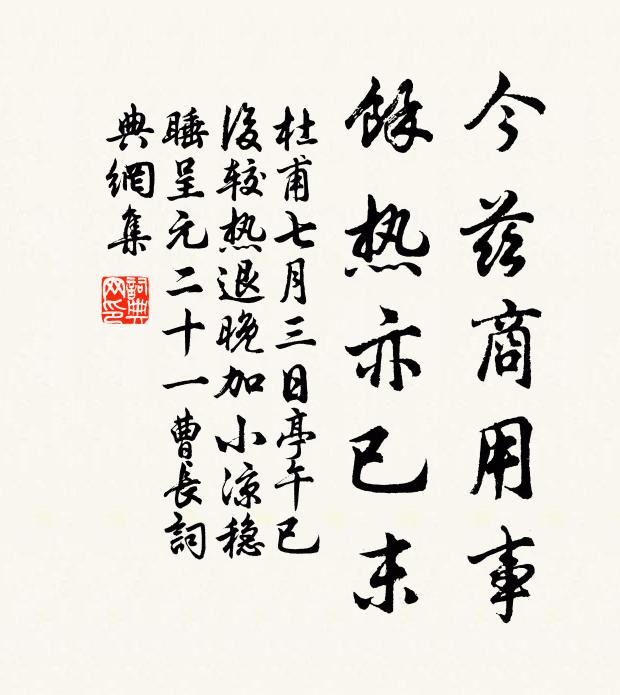 今茲商用事
餘热亦已末
杜甫七月三日亭午已
後较热退晚加小涼穏
睡呈元二十一曹長詞
典網集
詞典
网印